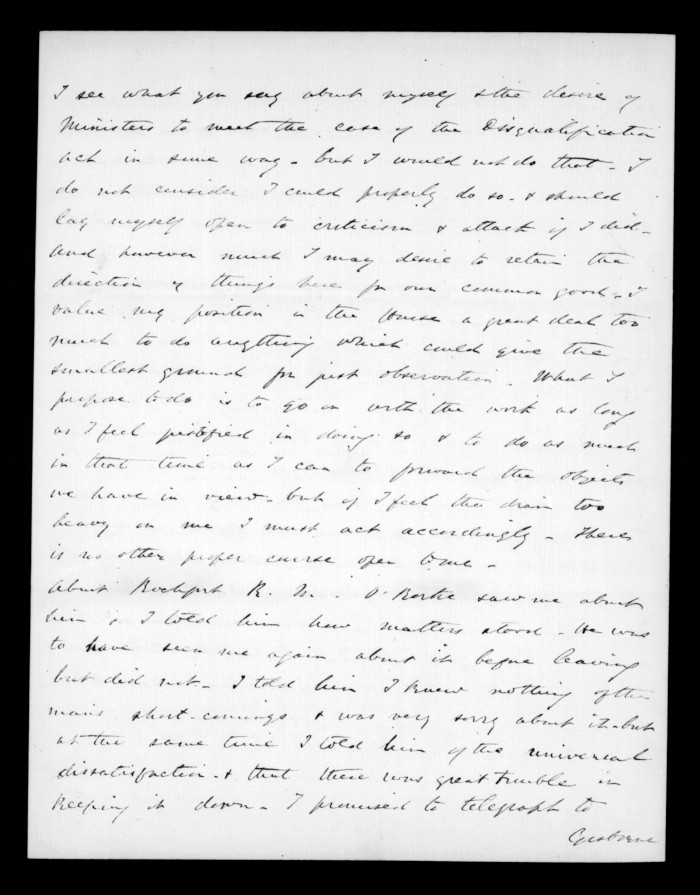 I see what you say about myself & the desire of
Ministers to meet the case of the Disqualification
act in some way - but I would not do that - I
do not consider I could properly do so - & should
lay myself open to criticism & attack if I did -
and however much I may desire to retain the
direction of things here for our common good - I
value my position in the House a great deal too
much to do anything which could give the
smallest ground for just observation. What I
propose to do is to go on with the work as long
as I feel justified in doing so & to do as much
in that time as I can to forward the objects
we have in view - but if I feel the drain too
heavy on me I must act accordingly - There
is no other proper course open to me -
About Rochfort R. M. O'Rorke saw me about
him & I told him how matters stood - He was
to have seen me again about it before leaving
but did not - I told him I knew nothing of the
mans short-comings & was very sorry about it - but
at the same time I told him of the universal
dissatisfaction - & that there was great trouble in
keeping it down - I promised to telegraph to
Gisborne